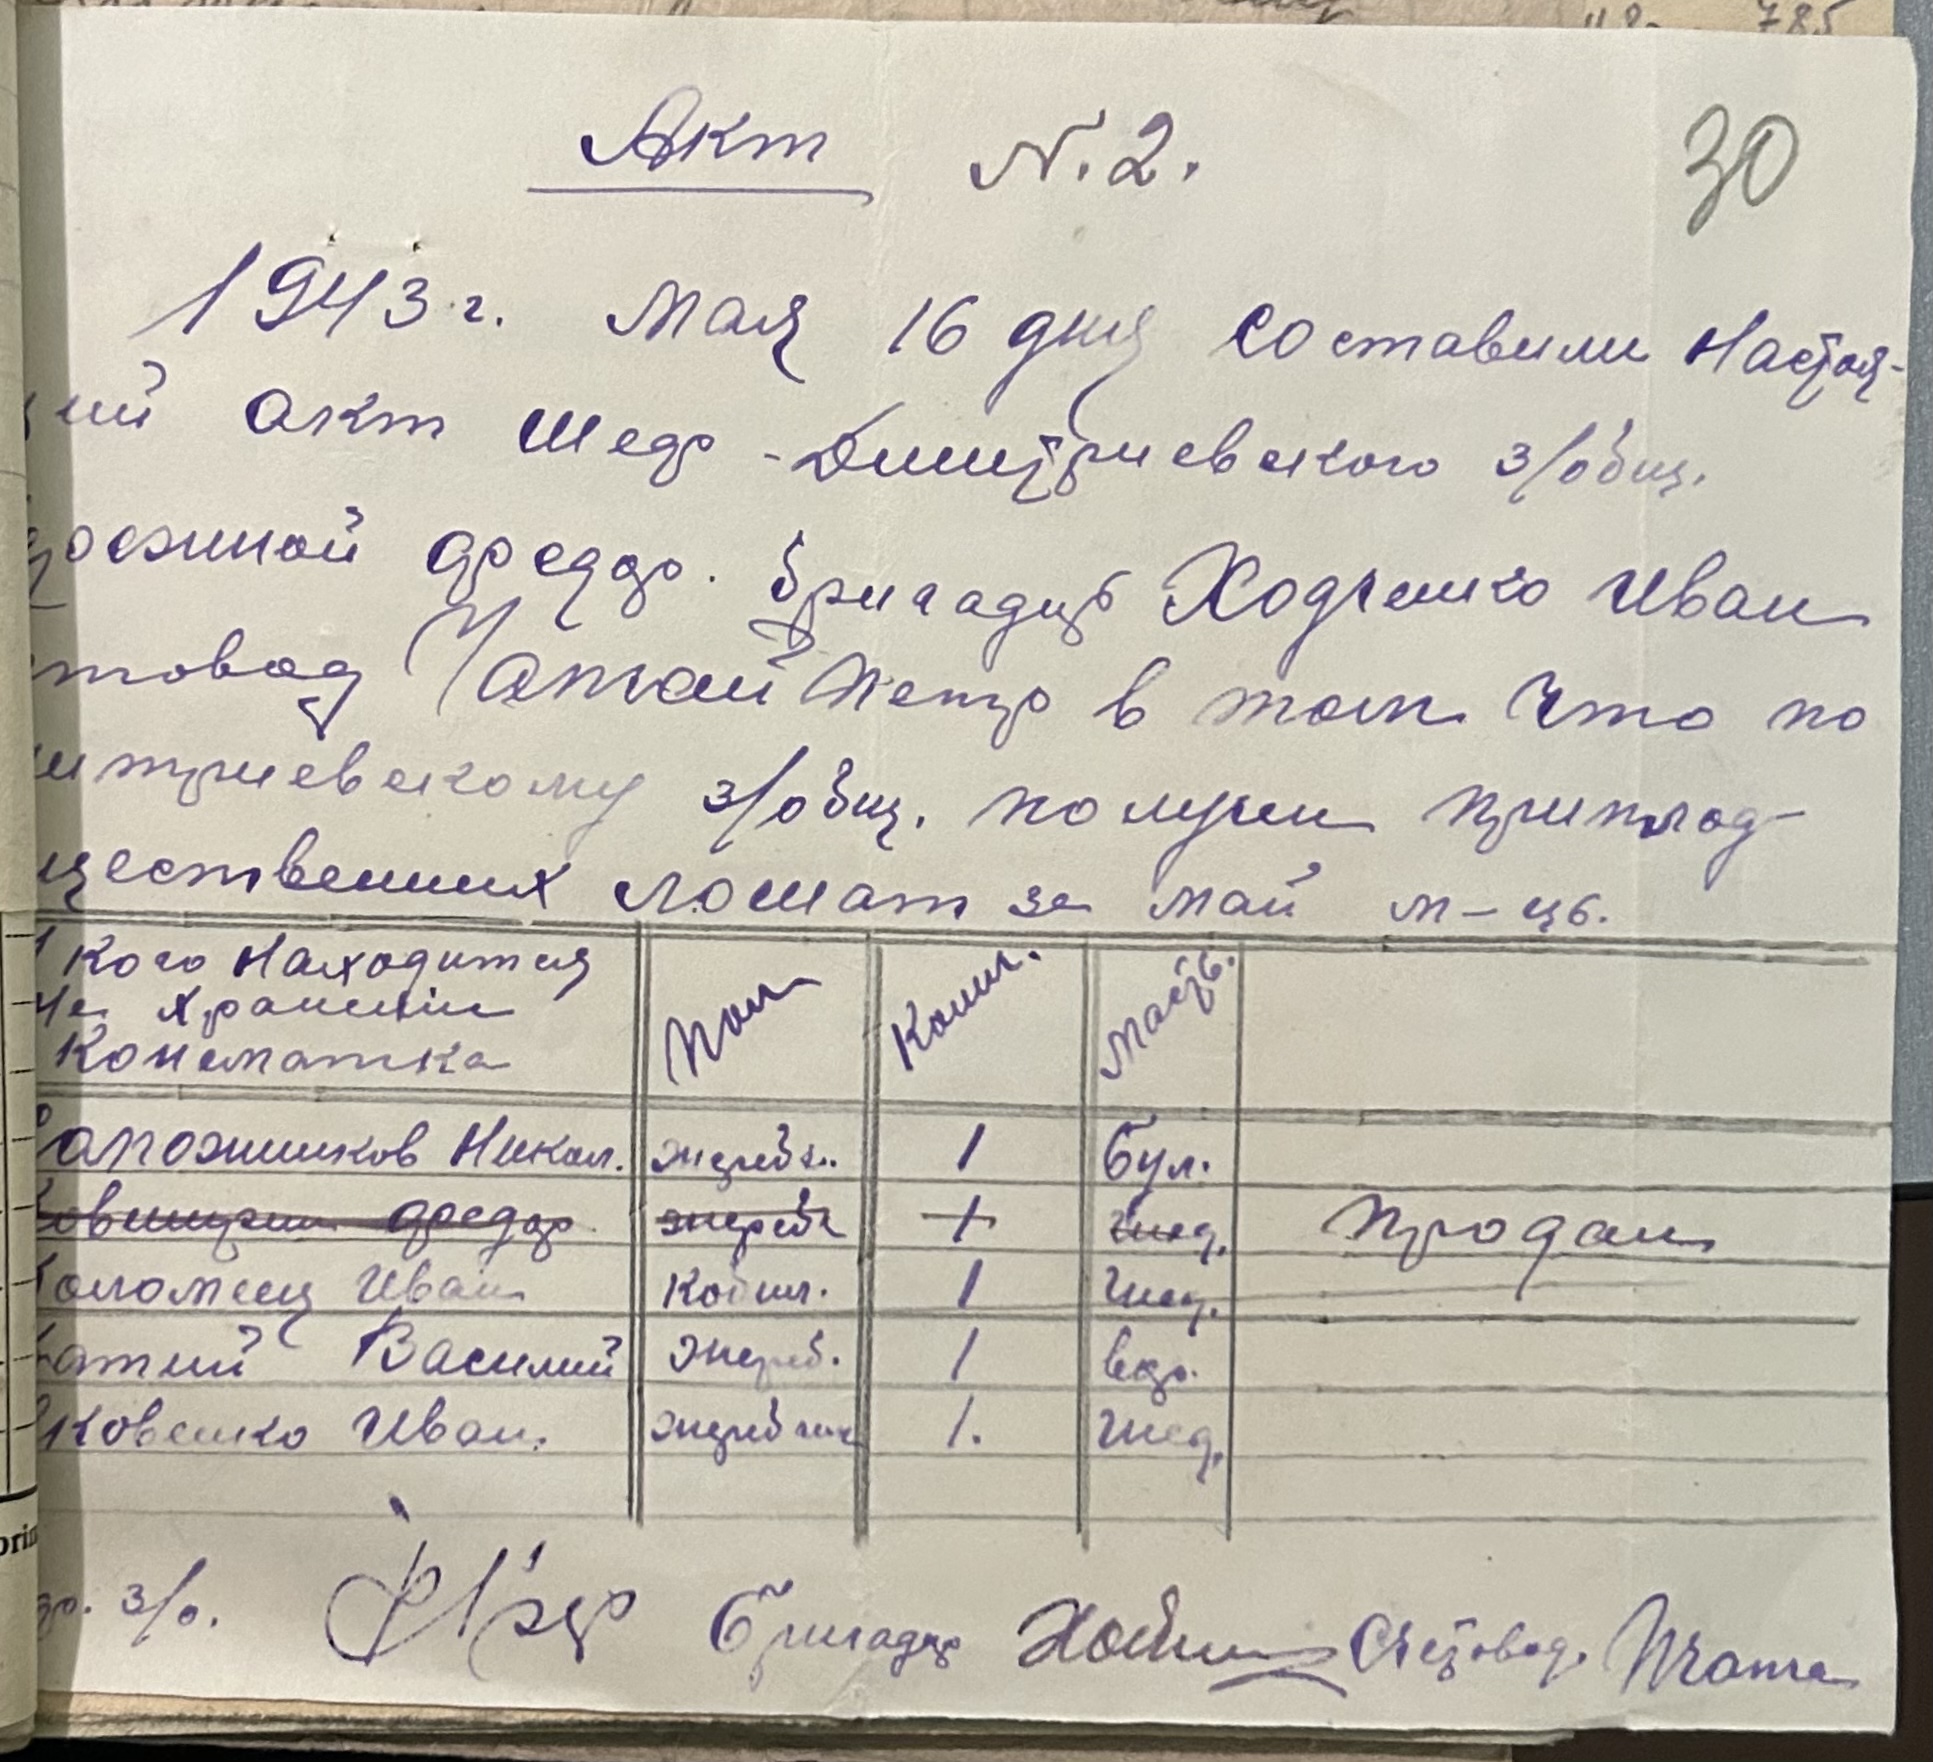 785
Акт N. 2.
30
1943 г. Мая 16 дня составили Настоя-
щий акт Шеф-Дмитриевского з/общ.
Федор. бригадир Ходченко Иван
товод Петр в том что по
митриевскому з/общ. получен приплод
щественних лошат за май м-ць.
кого находится
на хранении
Конематка
Пол
Колич.
Масть.
апожников Никол. жеребч. 1 бул.
Федор жеребч 1 гнед. Продан
оломеец Иван кобыл. 1 гнед.
атий Василий жереб. 1 вор.
ковенко Иван. жеребчик 1. гнед.
з/о. Бригадир Счетовод.
prin